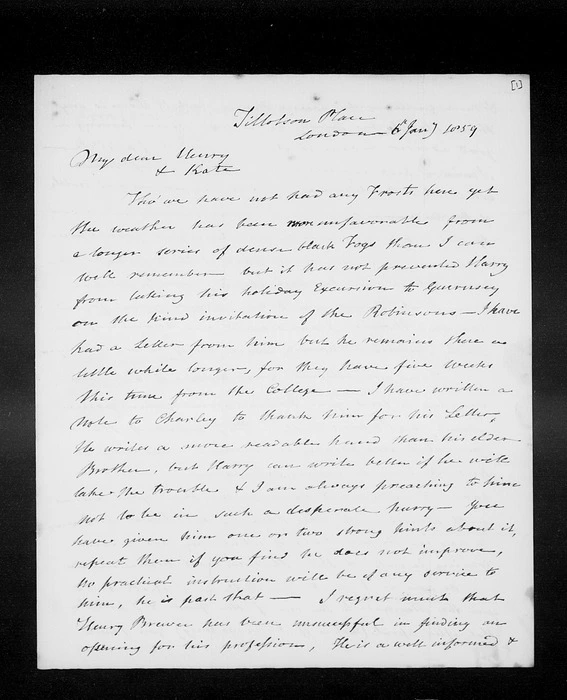 [1]
Tillotson Place
London 6th Jany 1859
My dear Henry
& Kate
Tho' we have not had any Frosts here yet
the weather has been more unfavorable from
a longer series of dense black Fogs than I can
well remember but it has not prevented Harry
from taking his holiday Excursion to Guernsey
on the kind invitation of the Robinsons — I have
had a Letter from him but he remains there a
little while longer, for they have five weeks
this time from the College — I have written a
Note to Charley to thank him for his Letter,
He writes a more readable hand than his elder
Brother, but Harry can write better if he will
take the trouble & I am always preaching to him
not to be in such a desperate hurry — You
have given him one or two strong hints about it,
repeat them if you find he does not improve,
No practical instruction will be of any service to
him, he is past that — I regret much that
Henry Brewer has been unsuccessful in finding an
opening for his profession, He is a well informed &